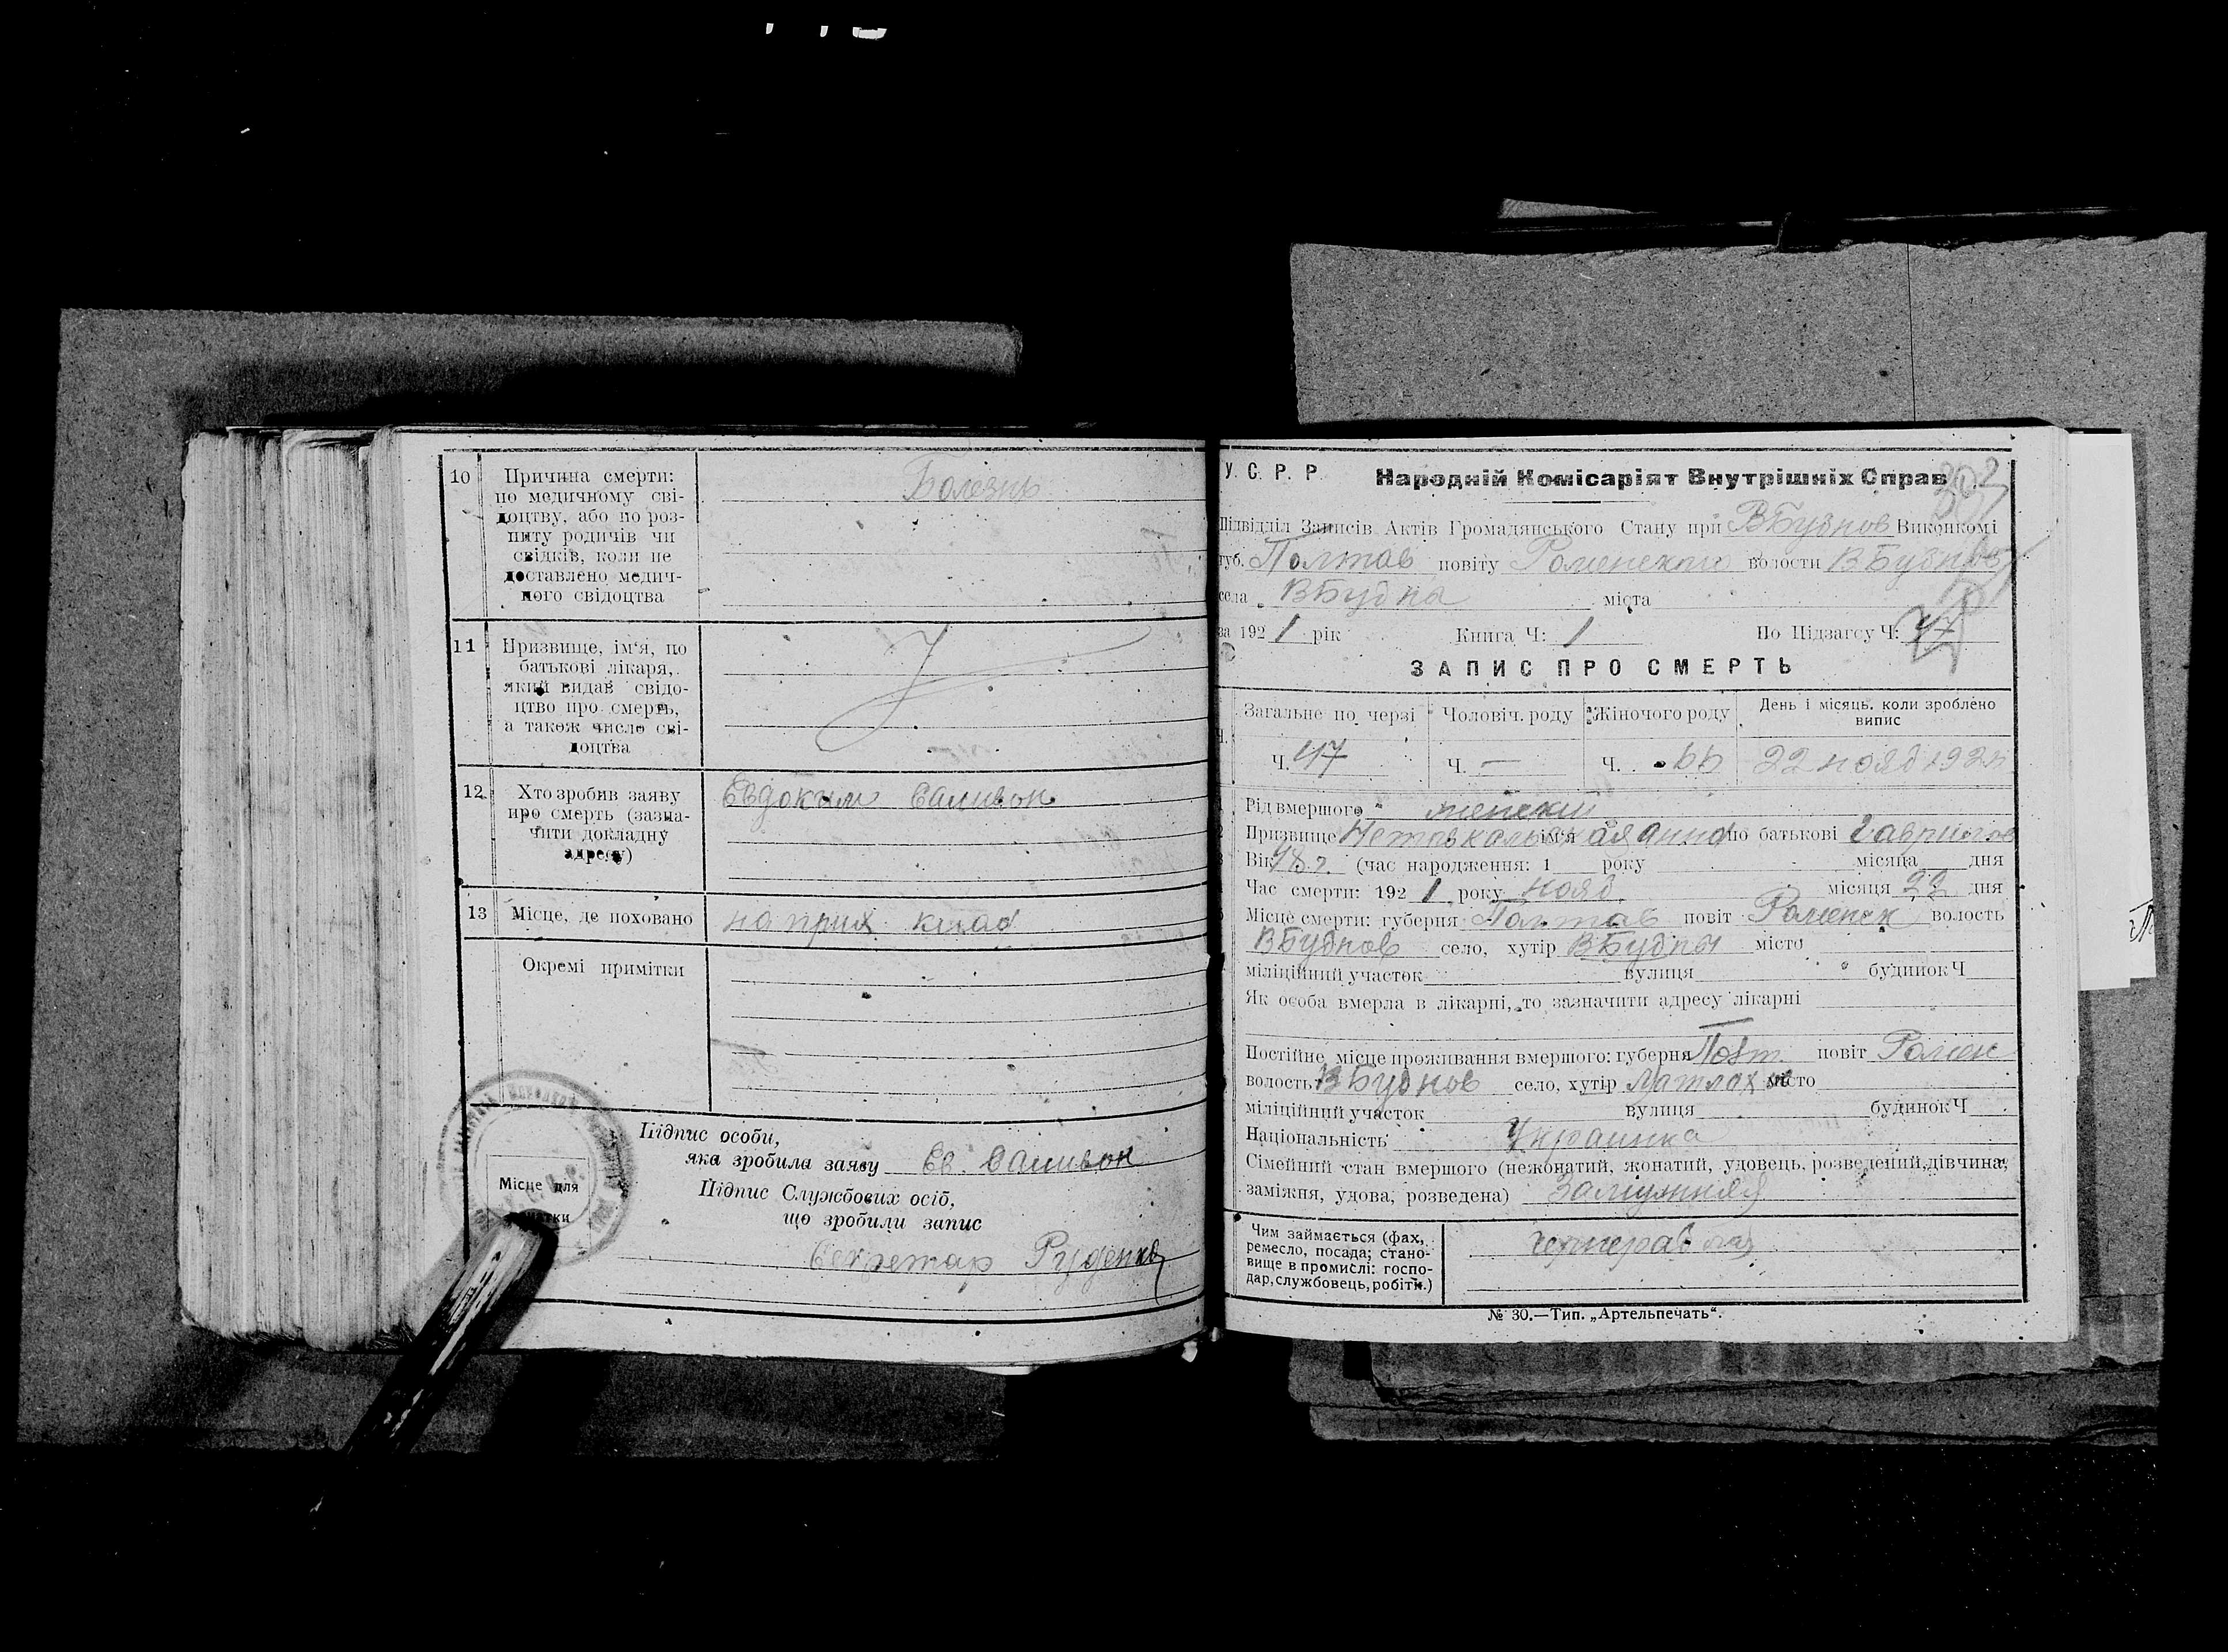 10
Причина смерти:
по медичному сві-
доцтву, або по роз-
питу родичів чи
свідків, коли не
доставлено медич-
ного свідоцтва
Болезнь
11
Призвище, ім'я, по
батькові лікаря,
який видав свідо-
цтво про смерть,
а також число сві-
доцтва
12
Хто зробив заяву
про смерть (зазна-
чити докладну
адресу)
Евдоким Саливон
13
Місце, де поховано
на прих клад
Окремі примітки
Місце для
Підпис особи,
яка зробила заяву Ев. Саливон
Підпис Службових осіб,
що зробили запис
Секретар Руденко
У. С. Р. Р.
Народній Комісаріят Внутрішніх Справ
Підвідділ Записів Актів Громадянського Стану при ВБубнов Виконкомі
губ. Полтав повіту Роменского волости ВБубнов
села ВБубны міста
за 1921 рік Книга Ч: 1 По Підзагсу Ч: 47
ЗАПИС ПРО СМЕРТЬ
Загальне по черзі Чоловіч. роду Жіночого роду День і місяць, коли зроблено
випис
Ч. 47 Ч. — Ч. 22 нояб 1921
Рід вмершого женский
Призвище ім'я Анна по батькові Гаврилов
Вік (час народження: 1 року місяца дня
Час смерти: 1921 року нояб місяця 22 дня
Місце смерти: губерня Полтав повіт Роменск волость
ВБубнов село, хутір ВБубны місто
міліційний участок вулиця будинок Ч
Як особа вмерла в лікарні, то зазначити адресу лікарні
Постійне місце проживання вмершого: губерня Полт. повіт Ромен
волость ВБубнов село, хутір місто
міліційний участок вулиця будинок Ч
Національність Украинка
Сімейний стан вмершого (нежонатий, жонатий, удовець, розведений, дівчина,
заміжня, удова, розведена) Замужняя
Чим займається (фах,
ремесло, посада; стано-
вище в промислі: госпо-
дар, службовець, робітн.)
№ 30.—Тип. „Артельпечать“.